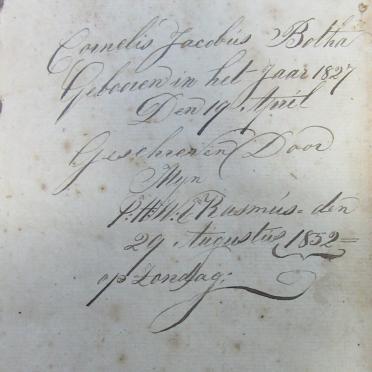 Cornelis Jacobus Botha
Gebooren in het Jaar 1827
Den 19 April
Geschreven Door
Myn
P. H. W. E Rasmus - den
29 Augustus 1852 =
op Zondag: